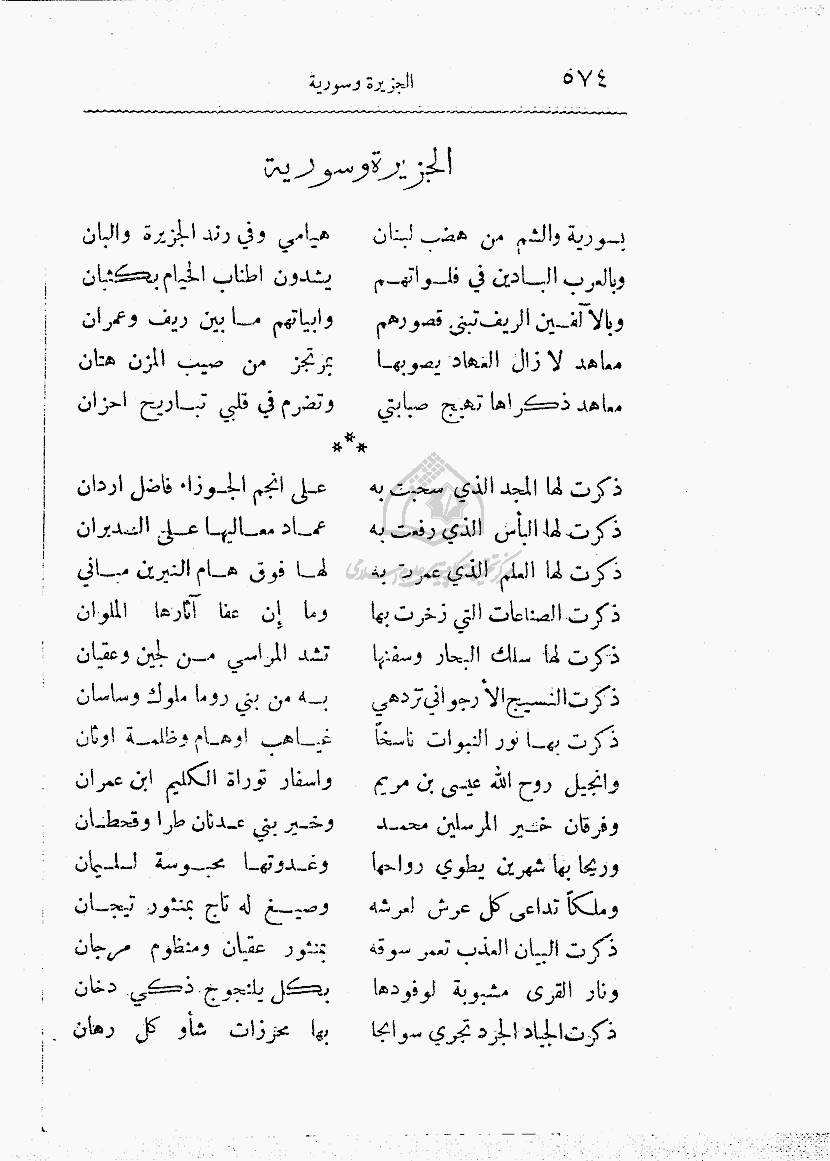 ٥٧٤ الجزيرة وسورية
الجزيرة وسورية
بسورية والشم من هضب لبنان هيامي وفي رند الجزيرة والبان
وبالعرب البادين في فلواتهم يشدون اطناب الخيام بكثبان
وبالآلفين الريف تبنى قصورهم وابياتهم ما بين ريف وعمران
معاهد لا زال العهاد يصوبها بمرتجز من صيب المزن هتان
معاهد ذكراها تهيج صبابتي وتضرم في قلبي تباريح احزان
***
ذكرت لها المجد الذي سحبت به على انجم الجوزاء فاضل اردان
ذكرت لها البأس الذي رفعت به عماد معاليها على السديران
ذكرت لها العلم الذي عمرت به لها فوق هام النيرين مباني
ذكرت الصناعات التي زخرت بها وما إن عفا آثارها الملوان
ذكرت لها سلك البحار وسفنها تشد المراسي من لجين وعقيان
ذكرت النسيج الأرجواني تزدهي به من بني روما ملوك وساسان
ذكرت بها نور النبوات ناسخاً غياهب اوهام وظلمة اوثان
وانجيل روح الله عيسى بن مريم واسفار توراة الكليم ابن عمران
وفرقان خير المرسلين محمد وخير بني عدنان طرا وقحطان
وريحا بها شهرين يطوي رواحها وغدوتها محبوسة لسليمان
وملكاً تداعى كل عرش لعرشه وصيغ له تاج بمنثور تيجان
ذكرت البيان العذب تعمر سوقه بمنثور عقيان ومنظوم مرجان
ونار القرى مشبوبة لوفودها بكل يلنجوج ذكي دخان
ذكرت الجياد الجرد تجري سوابحا بها محرزات شأو كل رهان